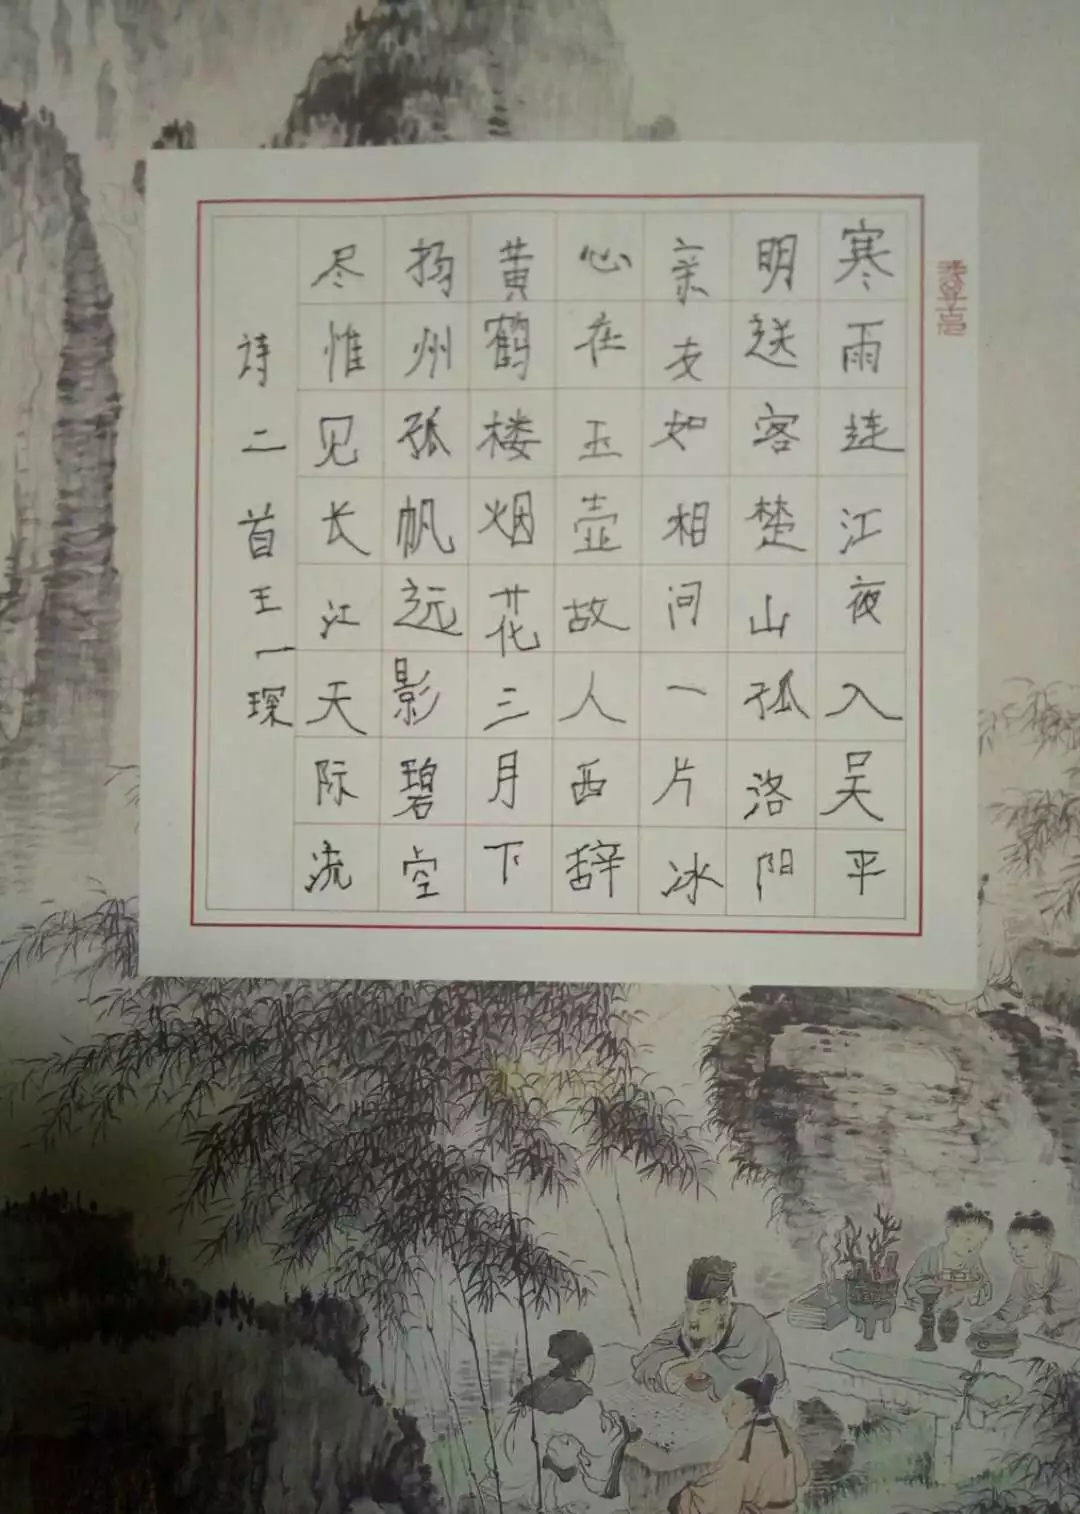 寒雨连江夜入吴平
明送客楚山孤洛阳
亲友如相问一片冰
心在玉壶故人西辞
黄鹤楼烟花三月下
扬州孤帆远影碧空
尽惟见长江天际流
诗二首王一琛